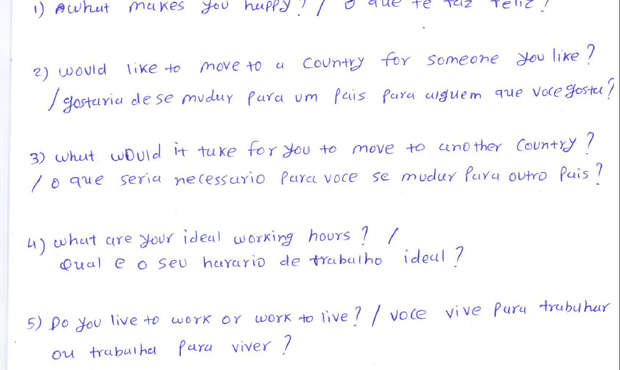 1) what makes you happy? / o que te faz feliz?
2) would like to move to a country for someone you like?
/ gostaria de se mudar para um pais para alguem que voce gosta?
3) what would it take for you to move to another country?
/ o que seria necessario para voce se mudar para outro pais?
4) what are your ideal working hours? /
Qual e o seu harario de trabalho ideal?
5) Do you live to work or work to live? / voce vive para trabalhar
ou trabalha para viver?